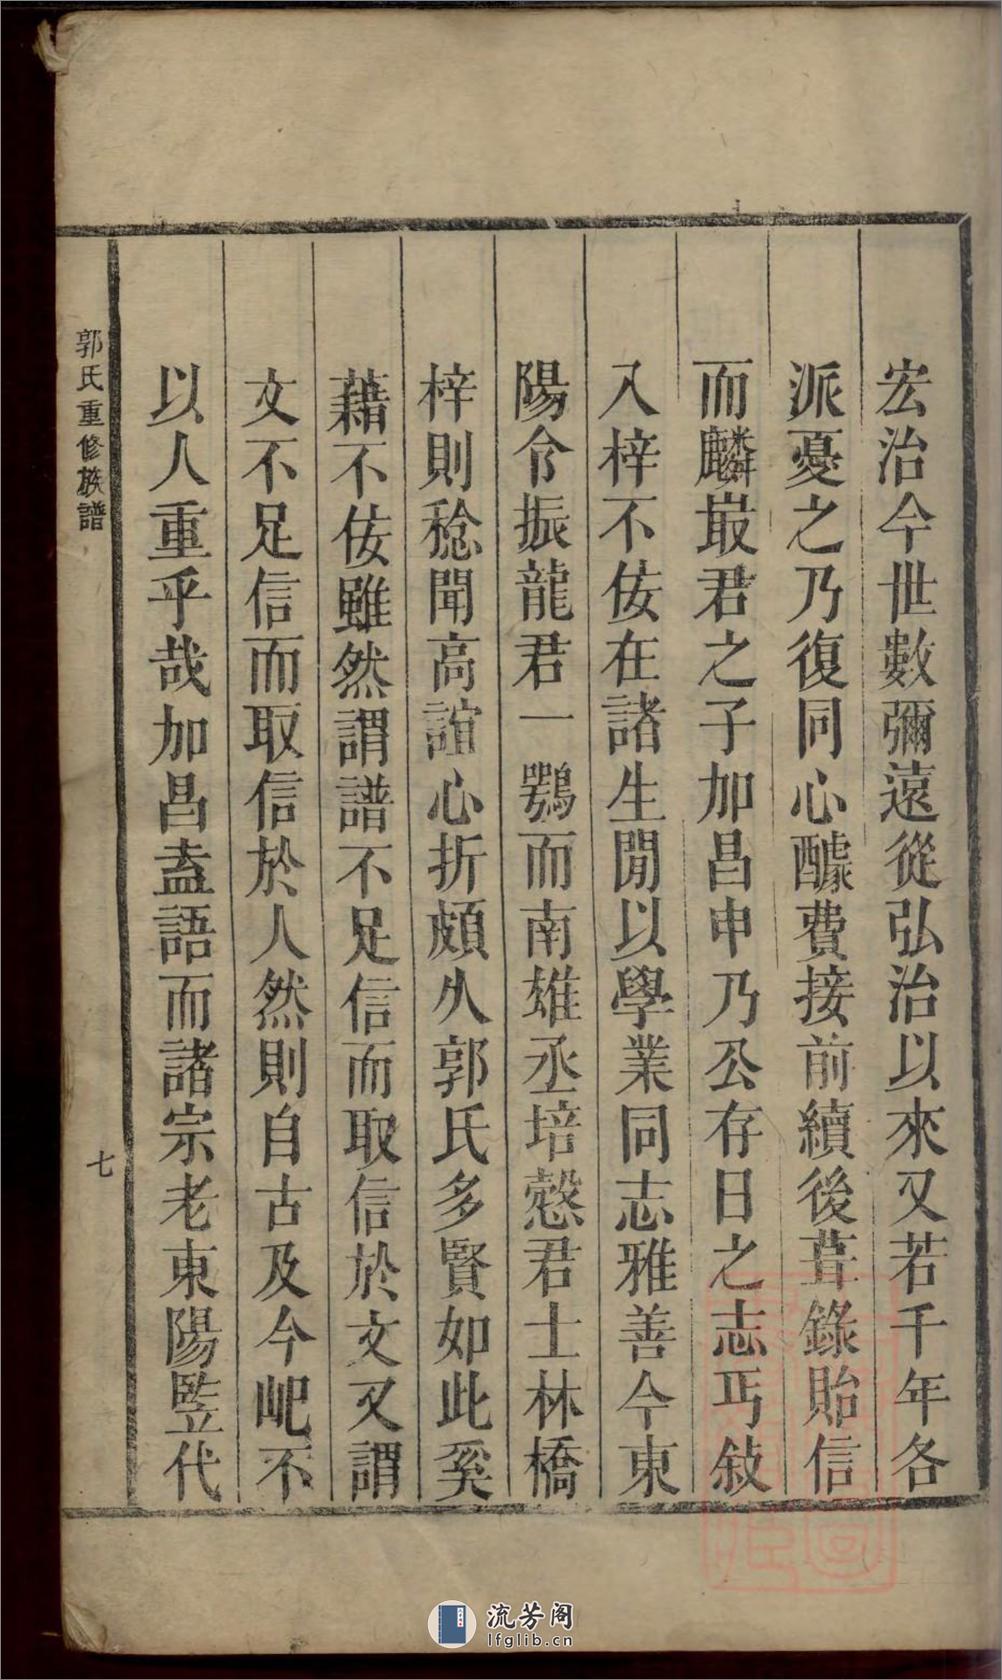 宏治今世數彌遠從弘治以來又若千年各
派憂之乃復同心醵費接前續後葺錄貽信
而麟㝡君之子加昌申乃公存日之志丏敍
入梓不佞在諸生閒以學業同志雅善今東
陽令振龍君一鶚而南雄丞培慤君士林橋
梓則稔聞高誼心折頗久郭氏多賢如此奚
藉不佞雖然謂譜不足信而取信於文又謂
文不足信而取信於人然則自古及今屺不
以人重乎哉加昌盍語而諸宗老東陽竪代
郭氏重修族譜
七
流芳阁
lfglib.cn